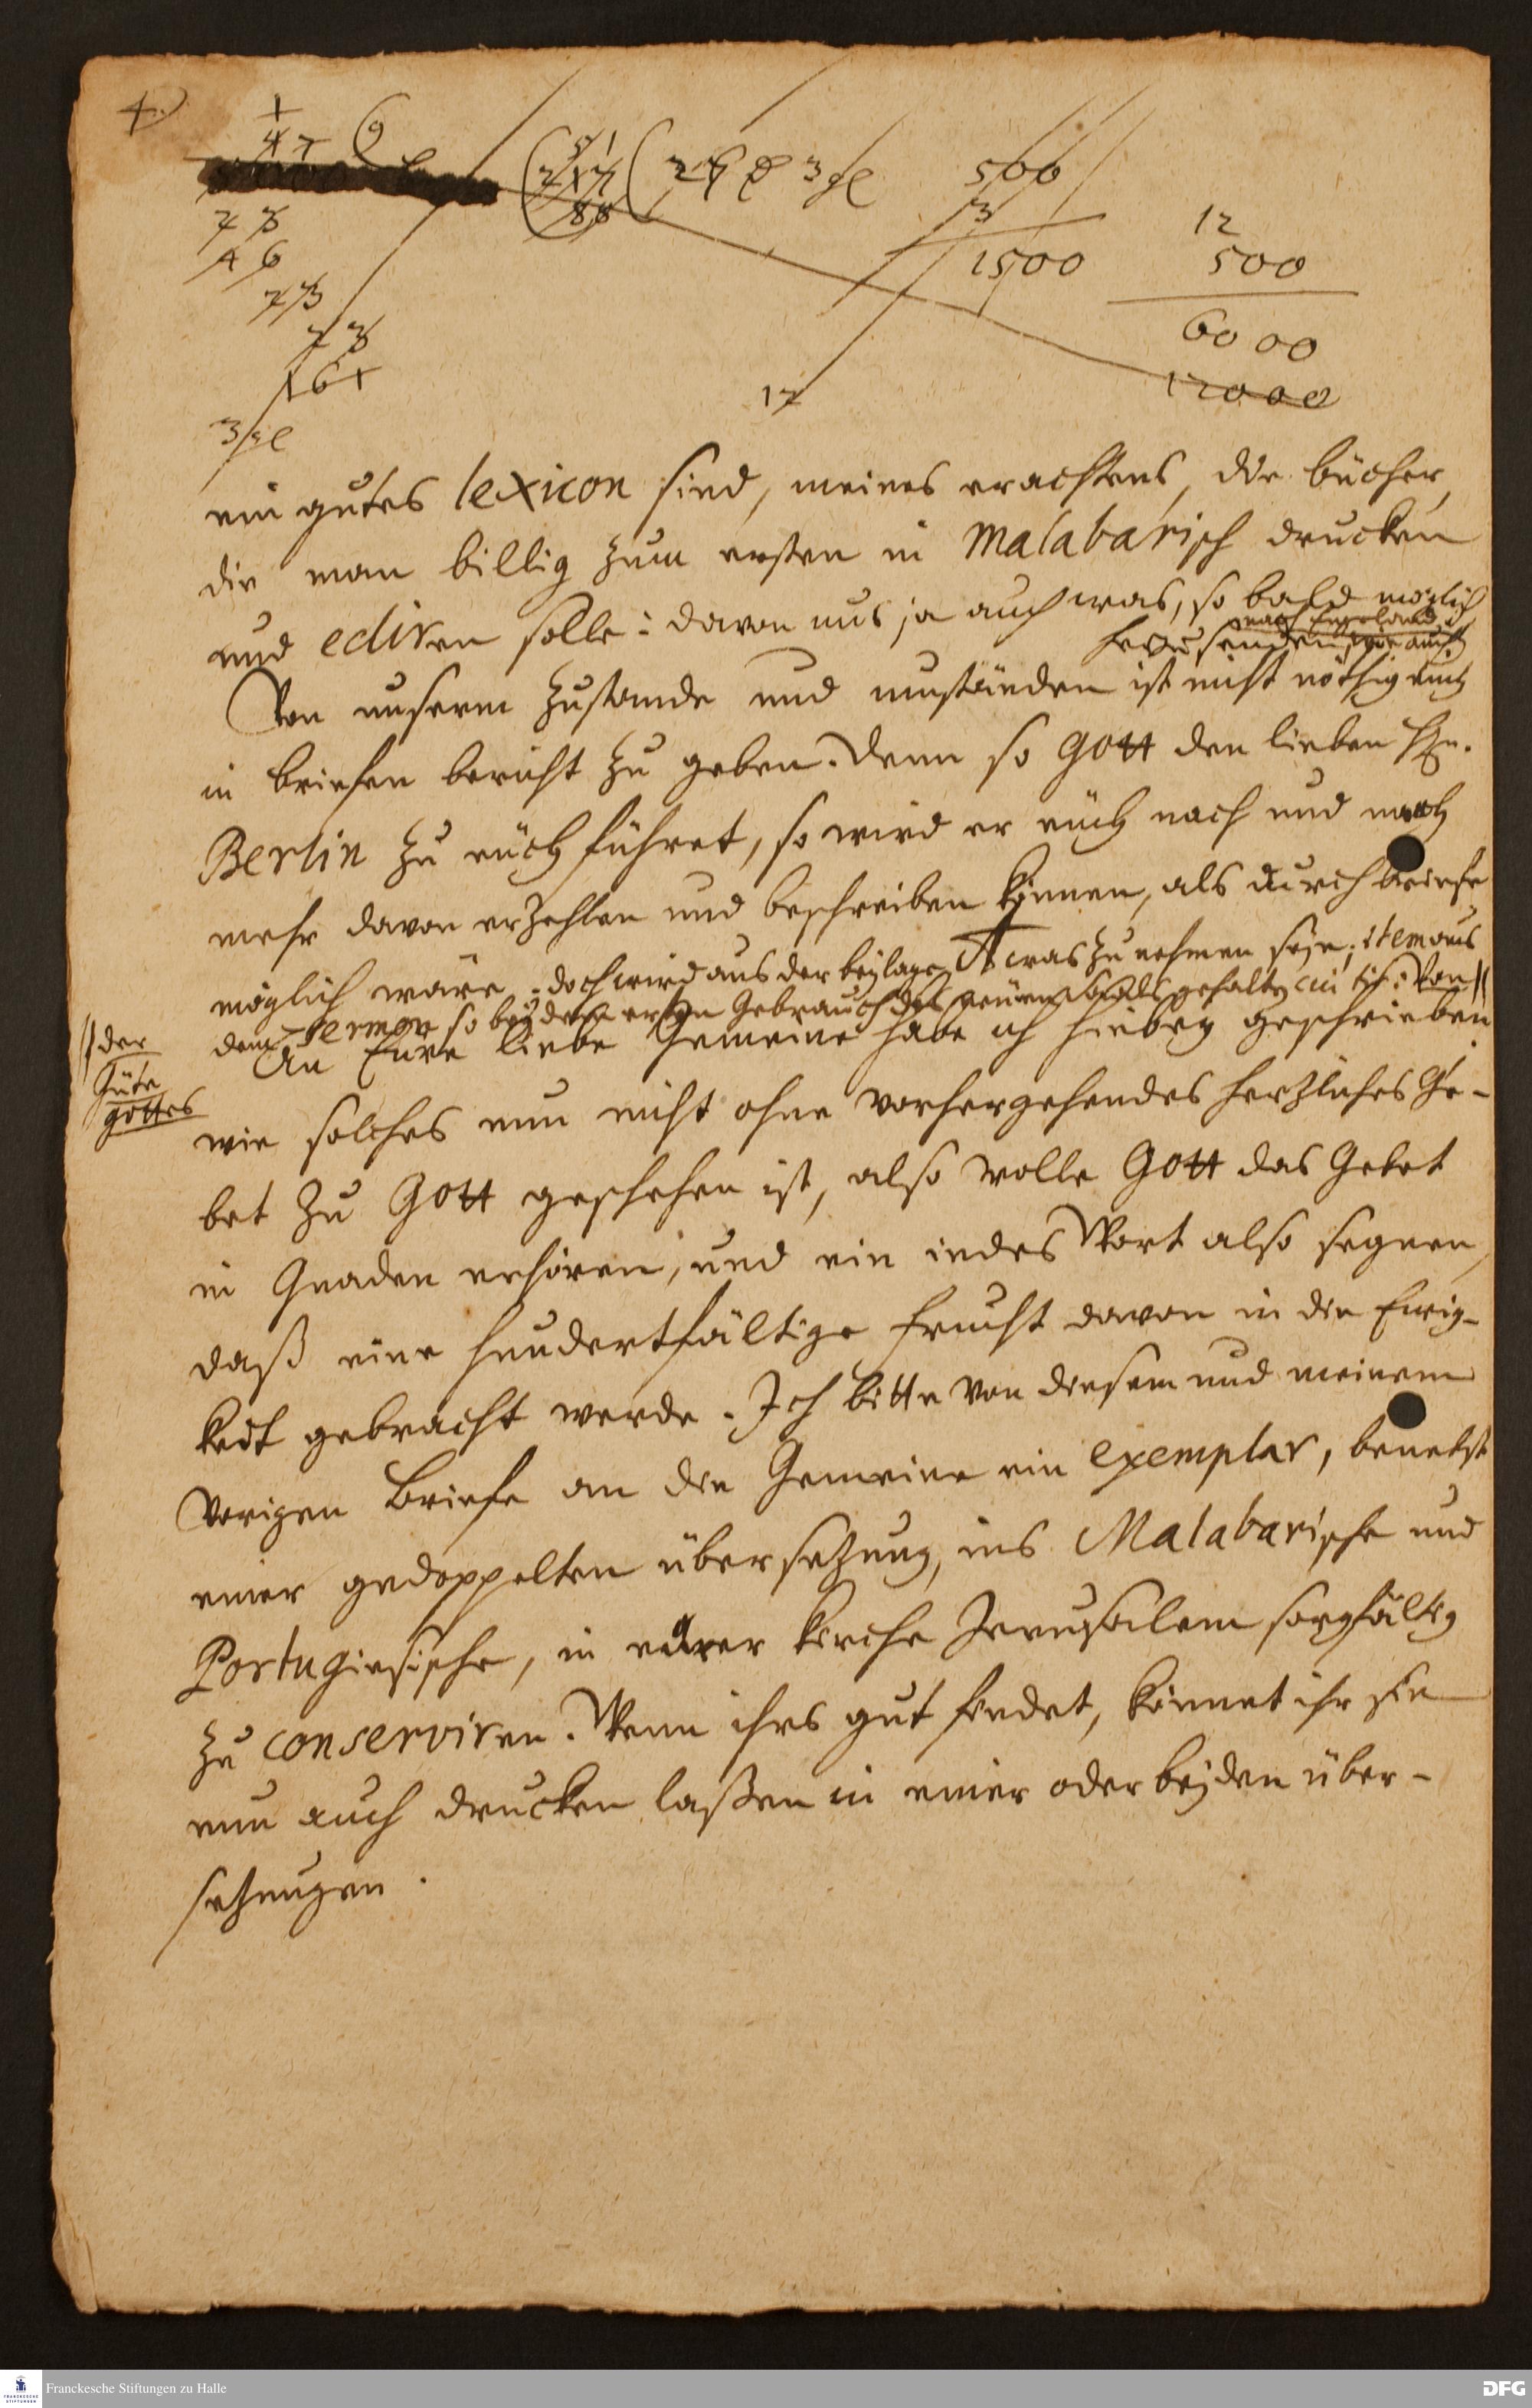 4.)
500
3
1500
12
500
6000
12000
12
3 gl
ein gutes lexicon sind, meines erachtens, die bücher,
die man billig zum ersten in Malabarisch drucken
und ediren solle: davon uns ja auch was, so bald möglich
nach Engeland
her zu senden, wie auch
Von unserm Zustande und umständen ist nicht nöthig euch
in briefen bericht zu geben. Denn so Gott den lieben Hn.
Berlin zu euch führet, so wird er euch nach und nach
mehr davon erzehlen und beschreiben können, als durch briefe
möglich wäre. doch wird aus der beylage A was zu nehmen seyn; item aus
dem Sermon so bey dem ersten Gebrauch des neuen Saals gehalten Von //
// der
Güte
Gottes
An Eure liebe Gemeine habe ich hiebey geschrieben.
wie solches nun nicht ohne vorhergehendes herzliches Ge-
bet zu Gott geschehen ist, also wolle Gott das Gebet
in Gnaden erhören, und ein iedes Wort also segnen,
daß eine hundertfältige frucht davon in die Ewig-
keit gebracht werde. Ich bitte von diesem und meinem
Vorigen Briefe an die Gemeine ein exemplar, benebst
einer gedoppelten übersetzung, ins Malabarische und
Portugiesische, in eurer Kirche Jerusalem sorgfältig
zu conserviren. Wenn ihrs gut findet, könnet ihr sie
nun auch drucken laßen in einer oder beyden über-
setzungen.
Franckesche Stiftungen zu Halle
DFG